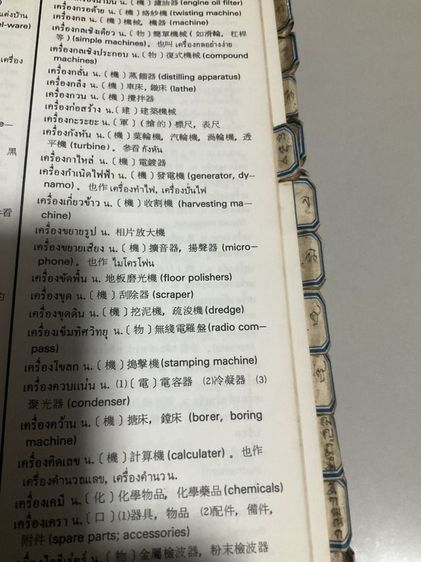 เครื่องกรองน้ำมัน น.〔機〕濾油器 (engine oil filter)
เครื่องกรอด้าย น.〔機〕絡紗機 (twisting machine)
เครื่องกล น.〔機〕機械, 機器 (machine)
เครื่องกลเชิงเดียว น.〔物〕簡單機械 (如滑輪, 杠桿
等) (simple machines)。也叫 เครื่องกลอย่างง่าย
เครื่องกลเชิงประกอบ น.〔物〕復式機械 (compound
machines)
เครื่องกลั่น น.〔機〕蒸餾器 (distilling apparatus)
เครื่องกลึง น.〔機〕車床, 鏇床 (lathe)
เครื่องกวน น.〔機〕攪拌器
เครื่องก่อสร้าง น.〔建〕建築機械
เครื่องกะระยะ น.〔軍〕(槍的) 標尺, 表尺
เครื่องกังหัน น.〔機〕葉輪機, 汽輪機, 渦輪機, 透
平機 (turbine)。參看 กังหัน
เครื่องกาไหล่ น.〔機〕電鍍器
เครื่องกำเนิดไฟฟ้า น.〔機〕發電機 (generator, dy-
namo)。也作 เครื่องทำไฟ, เครื่องปั่นไฟ
เครื่องเกี่ยวข้าว น.〔機〕收割機 (harvesting ma-
chine)
เครื่องขยายรูป น. 相片放大機
เครื่องขยายเสียง น.〔機〕擴音器, 揚聲器 (micro-
phone)。也作 ไมโครโฟน
เครื่องขัดพื้น น. 地板磨光機 (floor polishers)
เครื่องขูด น.〔機〕刮除器 (scraper)
เครื่องขุดดิน น.〔機〕挖泥機, 疏浚機 (dredge)
เครื่องเข็มทิศวิทยุ น.〔物〕無綫電羅盤 (radio com-
pass)
เครื่องไขสก น.〔機〕搗擊機 (stamping machine)
เครื่องควบแน่น น. ⑴〔電〕電容器 ⑵冷凝器 ⑶
聚光器 (condenser)
เครื่องคว้าน น.〔機〕搪床, 鏜床 (borer, boring
machine)
เครื่องคิดเลข น.〔機〕計算機 (calculater)。也作
เครื่องคำนวณเลข, เครื่องคำนวณ
เครื่องเคมี น.〔化〕化學物品, 化學藥品 (chemicals)
เครื่องเครา น.〔口〕⑴器具, 物品 ⑵配件, 備件,
附件 (spare parts; accessories)
น.〔物〕金屬檢波器, 粉末檢波器